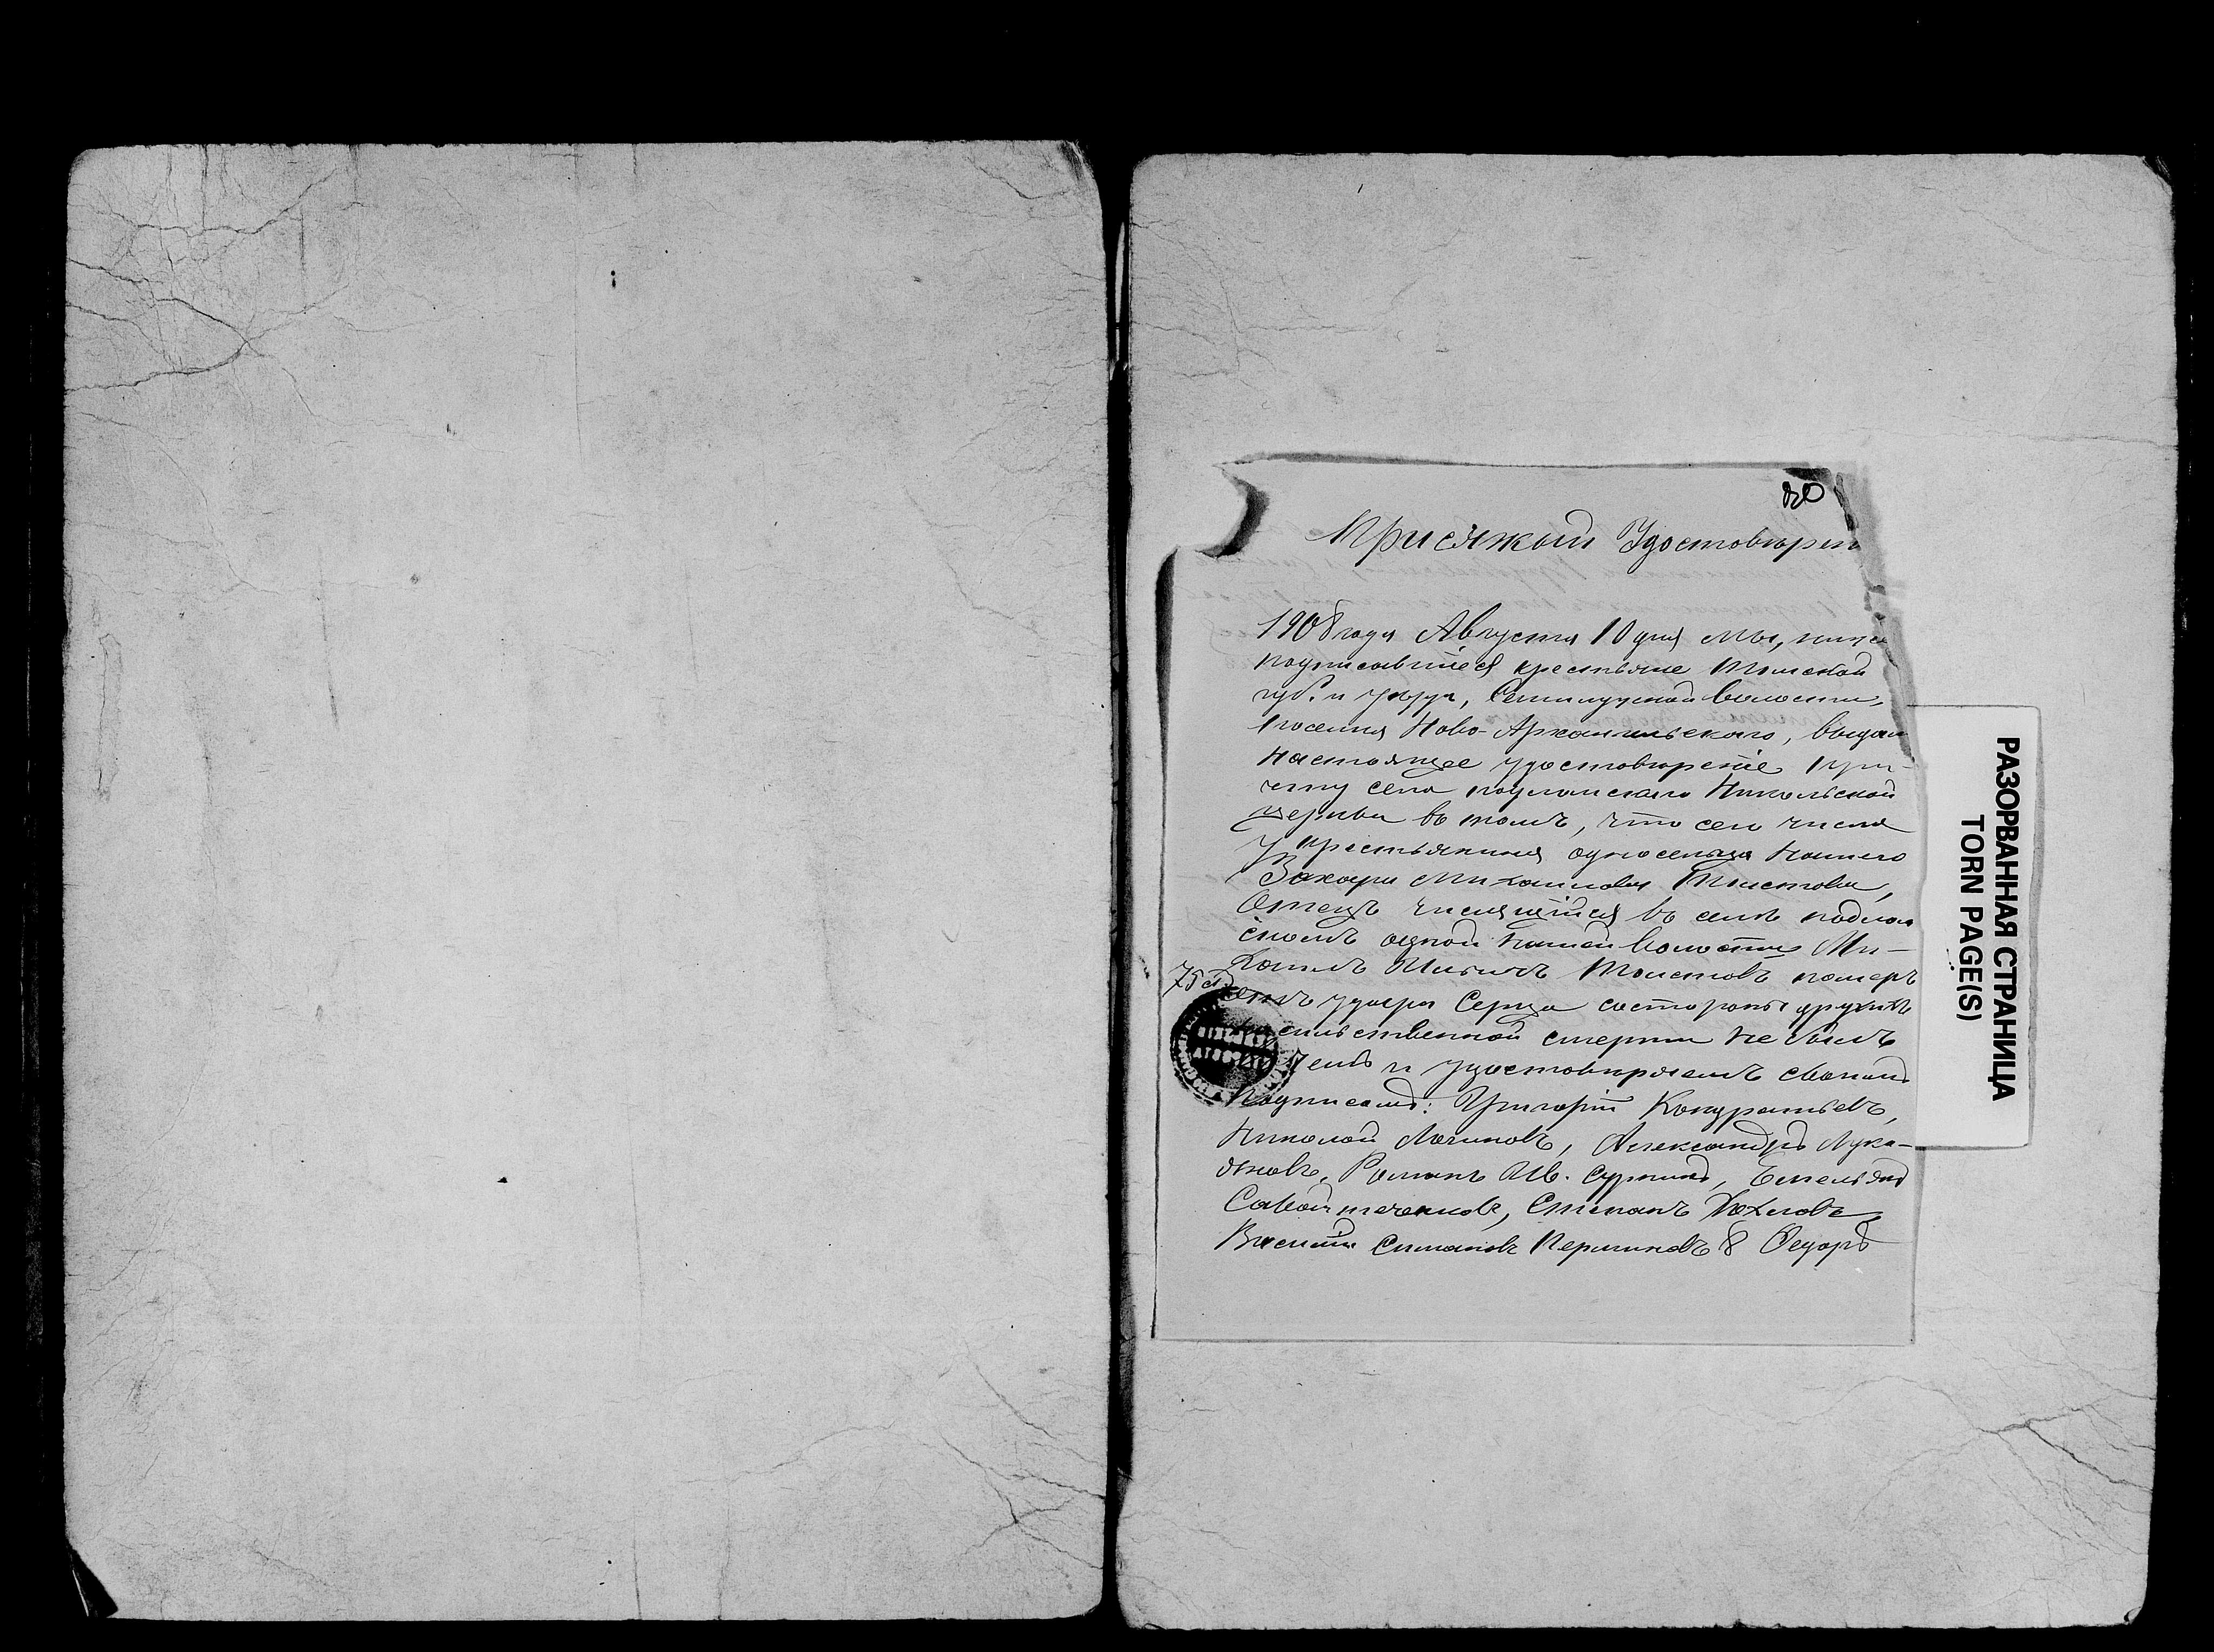 80
Присяжный Удостовѣрен
1908 года Августа 10 дня мы, ниже
подписавшіеся крестьяне Томской
губ. и уѣзда, Семилужной волости,
поселка Ново-Архангельскаго, выдали
настоящее удостовѣреніе при-
чту села подломскаго Никольской
церкви въ томъ, что сего числа
у крестьянина односельца нашего
Захара Михайлова Толстова,
Отецъ числящійся въ селѣ подлом
скомъ одной нашей волости Ми-
хаилъ Толстовъ померъ
удара Сердца со стороны другихъ
насильственной смерти не былъ
и удостовѣряемъ своими
Подписами: Григорій Кондратьевъ,
Николай Логиновъ, Александръ Лука-
яновъ, Романъ Ив. Суркинъ, Емельянъ
Степанъ
Василій Симановъ Першиковъ 8 Федоръ
РАЗОРВАННАЯ СТРАНИЦА
TORN PAGE(S)